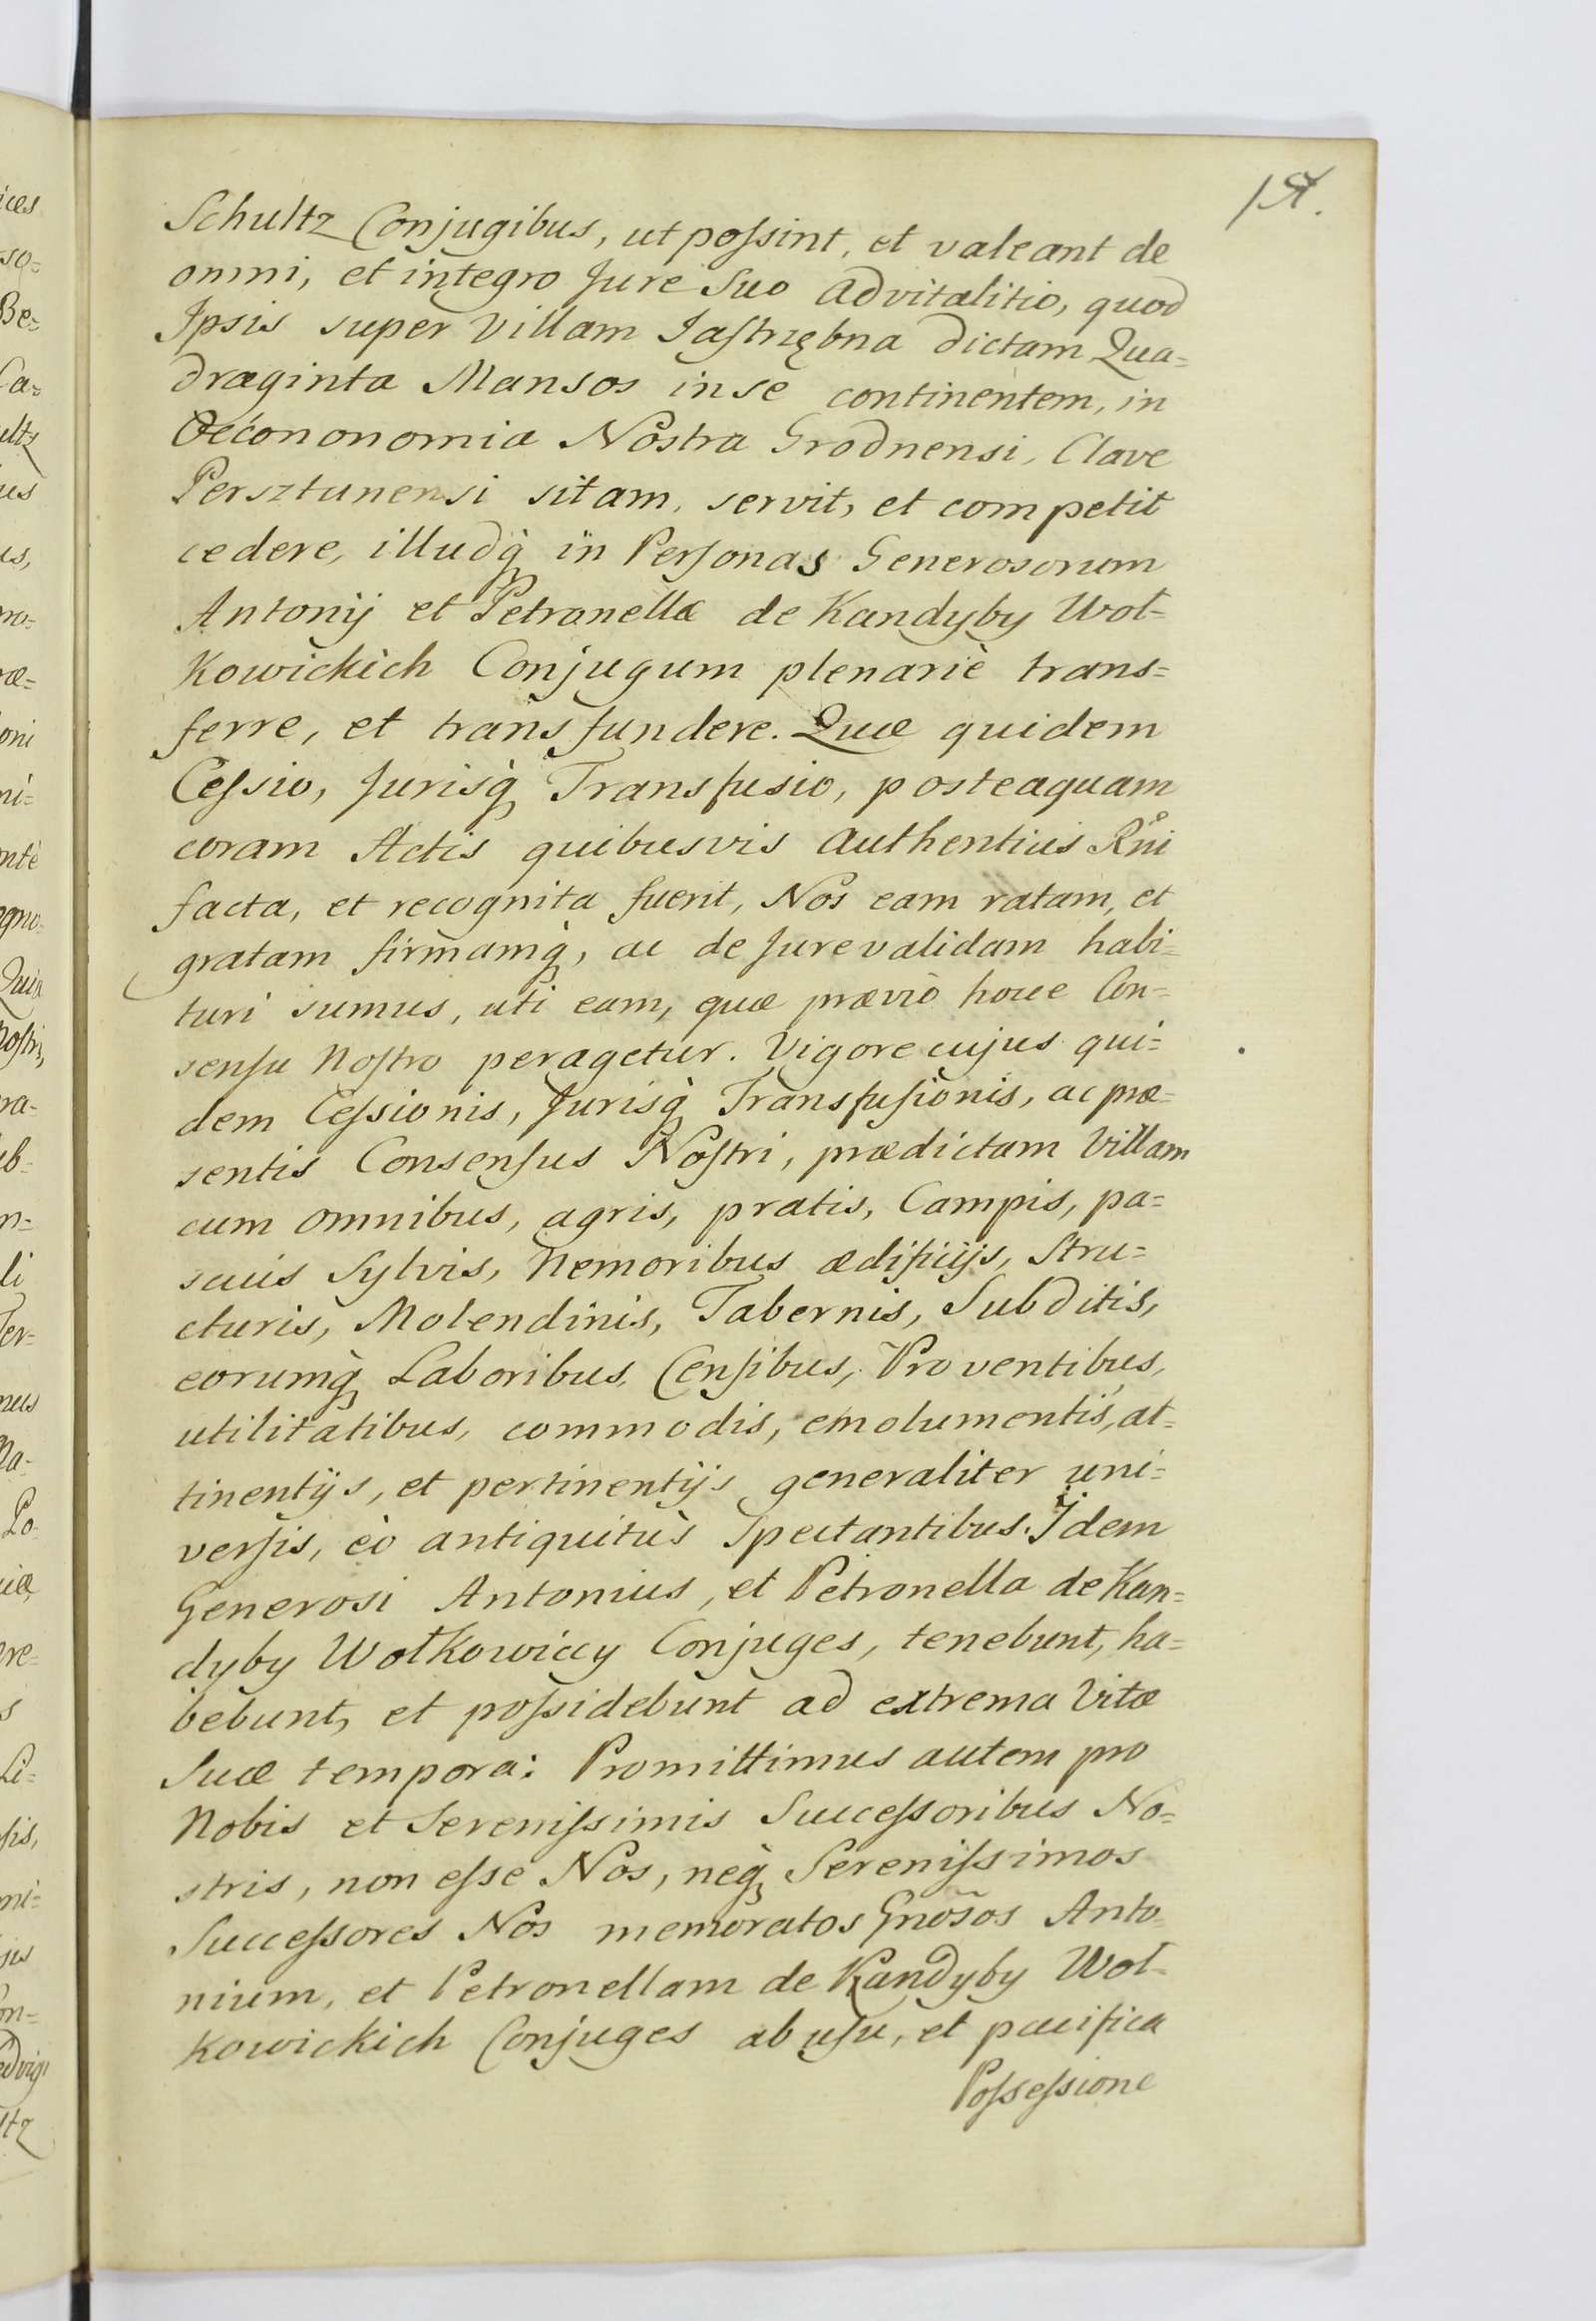 Schultz Conjugibus, ut poſsint, et valeant de
omni, et integro Jure Suo advitalitio, quod
Ipsis super Villam Jaſtrzębna dictam Qua=
draginta Mansos in se continentem, in
Oeconomia Nostra Grodnensi, Clave
Persztunensi sitam, servit, et competit
cedere, illudq̀ in Perſonas Generosorum
Antonij et Petronellæ de Kandyby Woł=
Kowickich Conjugum plenariè trans=
ferre, et transfundere. Quæ quidem
Ceſsio, Jurisq̀ Transfusio, posteaquam
coram Actis quibusvis Authenticis Rñi
facta, et recognita fuerit, Nos eam ratam, et
gratam firmamq̀, ac de Jure validam habi=
turi sumus, uti eam, quæ prævio hocce Con=
senſu Noſtro peragetur. Vigore cujus qui=
dem Ceſsionis, Jurisq̀ Transfuſionis, ac præ=
sentis Consenſus Noſtri, prædictam Villam
cum omnibus, agris, pratis, Campis, pa=
scuis Sylvis, Nemoribus ædificijs, Stru=
cturis, Molendinis, Tabernis, Subditis,
eorumq̀ Laboribus, Cenſibus, Proventibus,
utilitatibus, commodis, emolumentis, at=
tinentijs, et pertinentijs generaliter uni=
verſis, eò antiquitùs Spectantibus. Idem
Generosi Antonius, et Petronella de Kan=
dyby Wołkowiccy Conjuges, tenebunt, ha=
bebunt, et poſsidebunt ad extrema Vitæ
Suæ tempora: Promittimus autem pro
Nobis et Sereniſsimis Succeſsoribus No=
stris, non eſse Nos, neq̀ Sereniſsimos
Succeſsores Nos memoratos Gnõsos Anto=
nium, et Petronellam de Kandyby Woł=
Kowickich Conjuges ab uſu, et pacifica
Poſseſsione